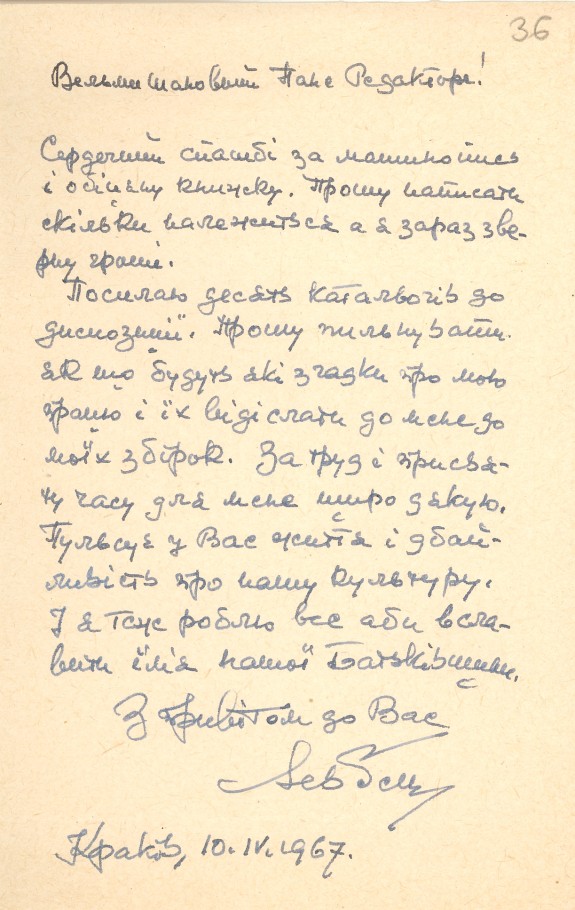 36
Вельмишановний Пане Редакторе!
Сердечний спасибі за машинопись
і обіцяну книжку. Прошу написати
скільки належиться а я зараз звер-
ну гроші.
Посилаю десять катальогів до
диспозиції. Прошу пильнувати
як що будуть які згадки про мою
працю і їх відіслати до мене до
моїх збірок. За труд і присвя-
ту часу для мене щиро дякую.
Пульсує у Вас життя і дбай-
ливість про нашу культуру.
І я теж роблю все аби всла-
вити ім'я нашої Батьківщини.
З привітом до Вас
Лев Ґец
Краків, 10.IV.1967.